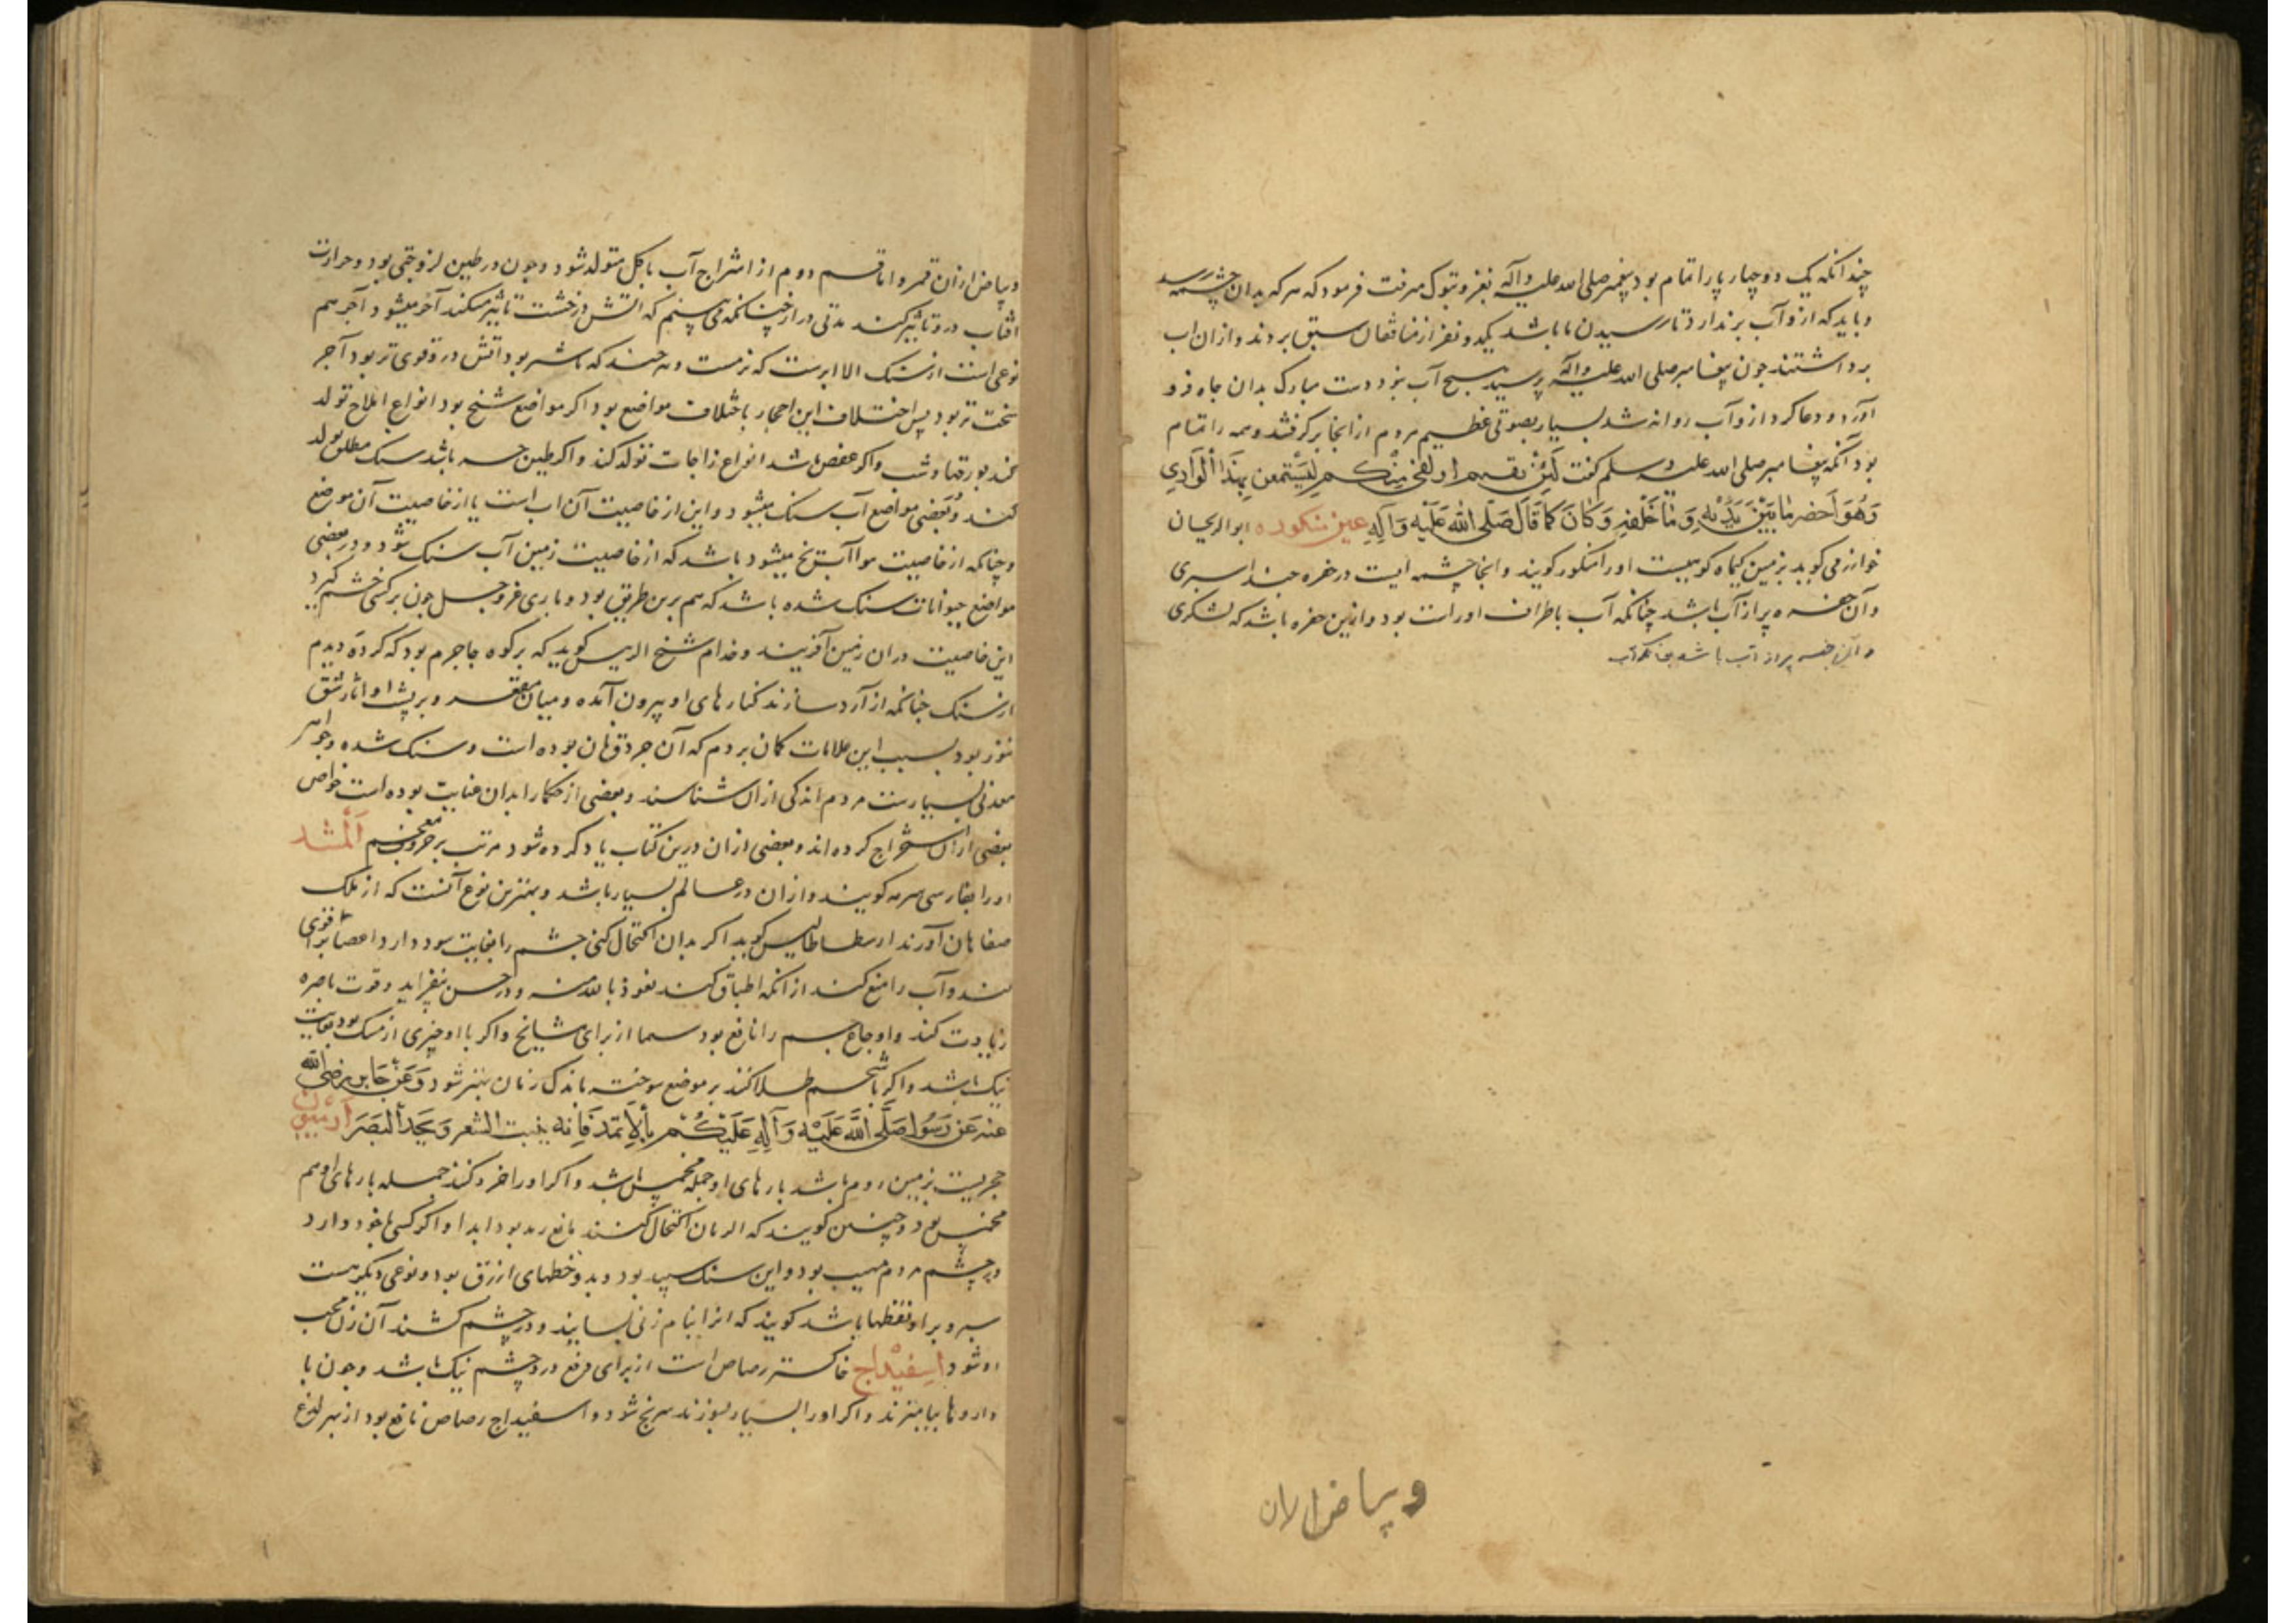 چندانکه یک دو چهار پا را تمام بود پیغمبر صلی الله علیه وآله بغزو تبوک میرفت فرمود که هر که بدان چشمه رسد
و باید که ازو آب برندارد تا رسیدن ما باشد یک دو نفر از منافقان سبق بردند و ازان اب
برداشتند جون پیغامبر صلی الله علیه وآله پرسید هیچ آب نبود دست مبارک بدان جاه فرو
آورد و دعا کرد ازو آب روانه شد بسیار بصوتی عظیم مردم از انجا برگرفتند و همه را تمام
بود آنکه پیغامبر صلی الله علیه وسلم کفت لَئِن بقیتم او بقی مِنْكم لیستمعن بِهَذَا الْوَادِي
وَهُوَ اَخضر مَا بَيْنَ يَدَيْهِ وَمَا خَلْفَهِ وَكَانَ كَمَا قَالَ صَلَّى اللَّه عَلَيْهِ وَآلِهِ عین منکوره ابو الریحان
خوارزمی کوید بزمین کیماک کوهیست اورا منکور کویند و انجا چشمه ایست در حفره جند اسبری
و آن حفره پر از آب باشد چنانکه آب باطراف او راست بود و ازین حفره باشد که لشکری
و آن حفره پر از آب باشد چنانکه آب
و بیاض ازان
و بیاض ازان قمر و اما قسم دوم از امتزاج آب با کل متولد شود و جون در طین لزوجتی بود و حرارت
افتاب درو تاثیر کند مدتی دراز چنانکمه می بینیم که اتش در خشت تاثیر میکند آخر میشود و آجر هم
نوعی است از سنک الا ابرست که نرمست و هر چند که باشد بود اتش درو قوی تر بود آجر
سخت تر بود پس اختلاف این احجار باختلاف مواضع بود اکر مواضع شخ بود انواع املاح تولد
کند بورقها و شب واکر عفص باشد انواع زاجات تولد کند واکر طین حسه باشد سنک مطلق تولد
کند و بعضی مواضع آب سنک میشود و این از خاصیت آن اب است یا از خاصیت آن موضع
و چنانکه از خاصیت هوا آب یخ میشود باشد که از خاصیت زمین آب سنک شود و در بعضی
مواضع حیوانات سنک شده باشد که هم برین طریق بود و باری عز وجل جون بر کسی خشم کیرد
این خاصیت دران زمین آفریند و خدام شیخ الریس کوید که بر کوه جاجرم بود که کرده دیدم
از سنک جنانکه از آرد سازند کنارهای او بیرون آمده و میان مقعر و بر پشت او اثار شق
تنور بود بسبب این علامات کمان بردم که آن جردق نان بوده است و سنک شده و جواهر
معدنی بسیارست مردم اندکی ازان شناسند و بعضی از حکما را بدان عنایت بوده است خواص
بعضی ازان استخراج کرده اند و بعضی ازان درین کتاب یاد کرده شود مرتب بر حروف معجم اَلْمشد
اورا بفارسی سرمه کویند و ازان در عالم بسیار باشد و بهترین نوع آنست که از ملک
صفاهان آورند ارسطاطالیس کوید اکر بدان اکتحال کنی جشم را بغایت سود دارد و اعصابرا قوی
کند و آب را منع کند از انکه اطباق کند نعوذ بالله منه و در حسن بیفزاید و قوت باصره
زیادت کند و اوجاع جسم را نافع بود سیما از برای مشایخ و اکر با او چیزی از مسک بود بغایت
نیک باشد و اکر با شحم طلا کنند بر موضع سوخته باندک زمان بهتر شود وَعَنْ جَابِر رضی الله
عنه عَن رَسُول صَلَّى اللَّه عَلَيْهِ وَآلِهِ عَلَيْكُمْ بِالْاِثمَد فَاِنه ینبت الشعر وَيحد البَصَر ارمیون
حجریست بزمین روم باشد بارهای او جمله مخمس باشد و اکر اورا خرد کنند جمله بارهای او هم
مخمس بود و چنین کویند که اکر بدان اکتحال کنند مانع رمد بود ابدا و اکر کسی با خود دارد
در چشم مردم مهیب بود و این سنک سپید بود و بدو خطهای ازرق بود و نوعی دیکر هست
سبز و بر او نقطها باشد کویند که انرا بنام زنی بسایند و در چشم کشند آن زن محب
او شود اسفیْداج خاکستر رصاص است از برای دفع درد چشم نیک باشد و جون با
داروها بیامیزند و اکر اورا بسیار بسوزند سرنج شود و اسفیداج رصاص نافع بود از بهر لدغ